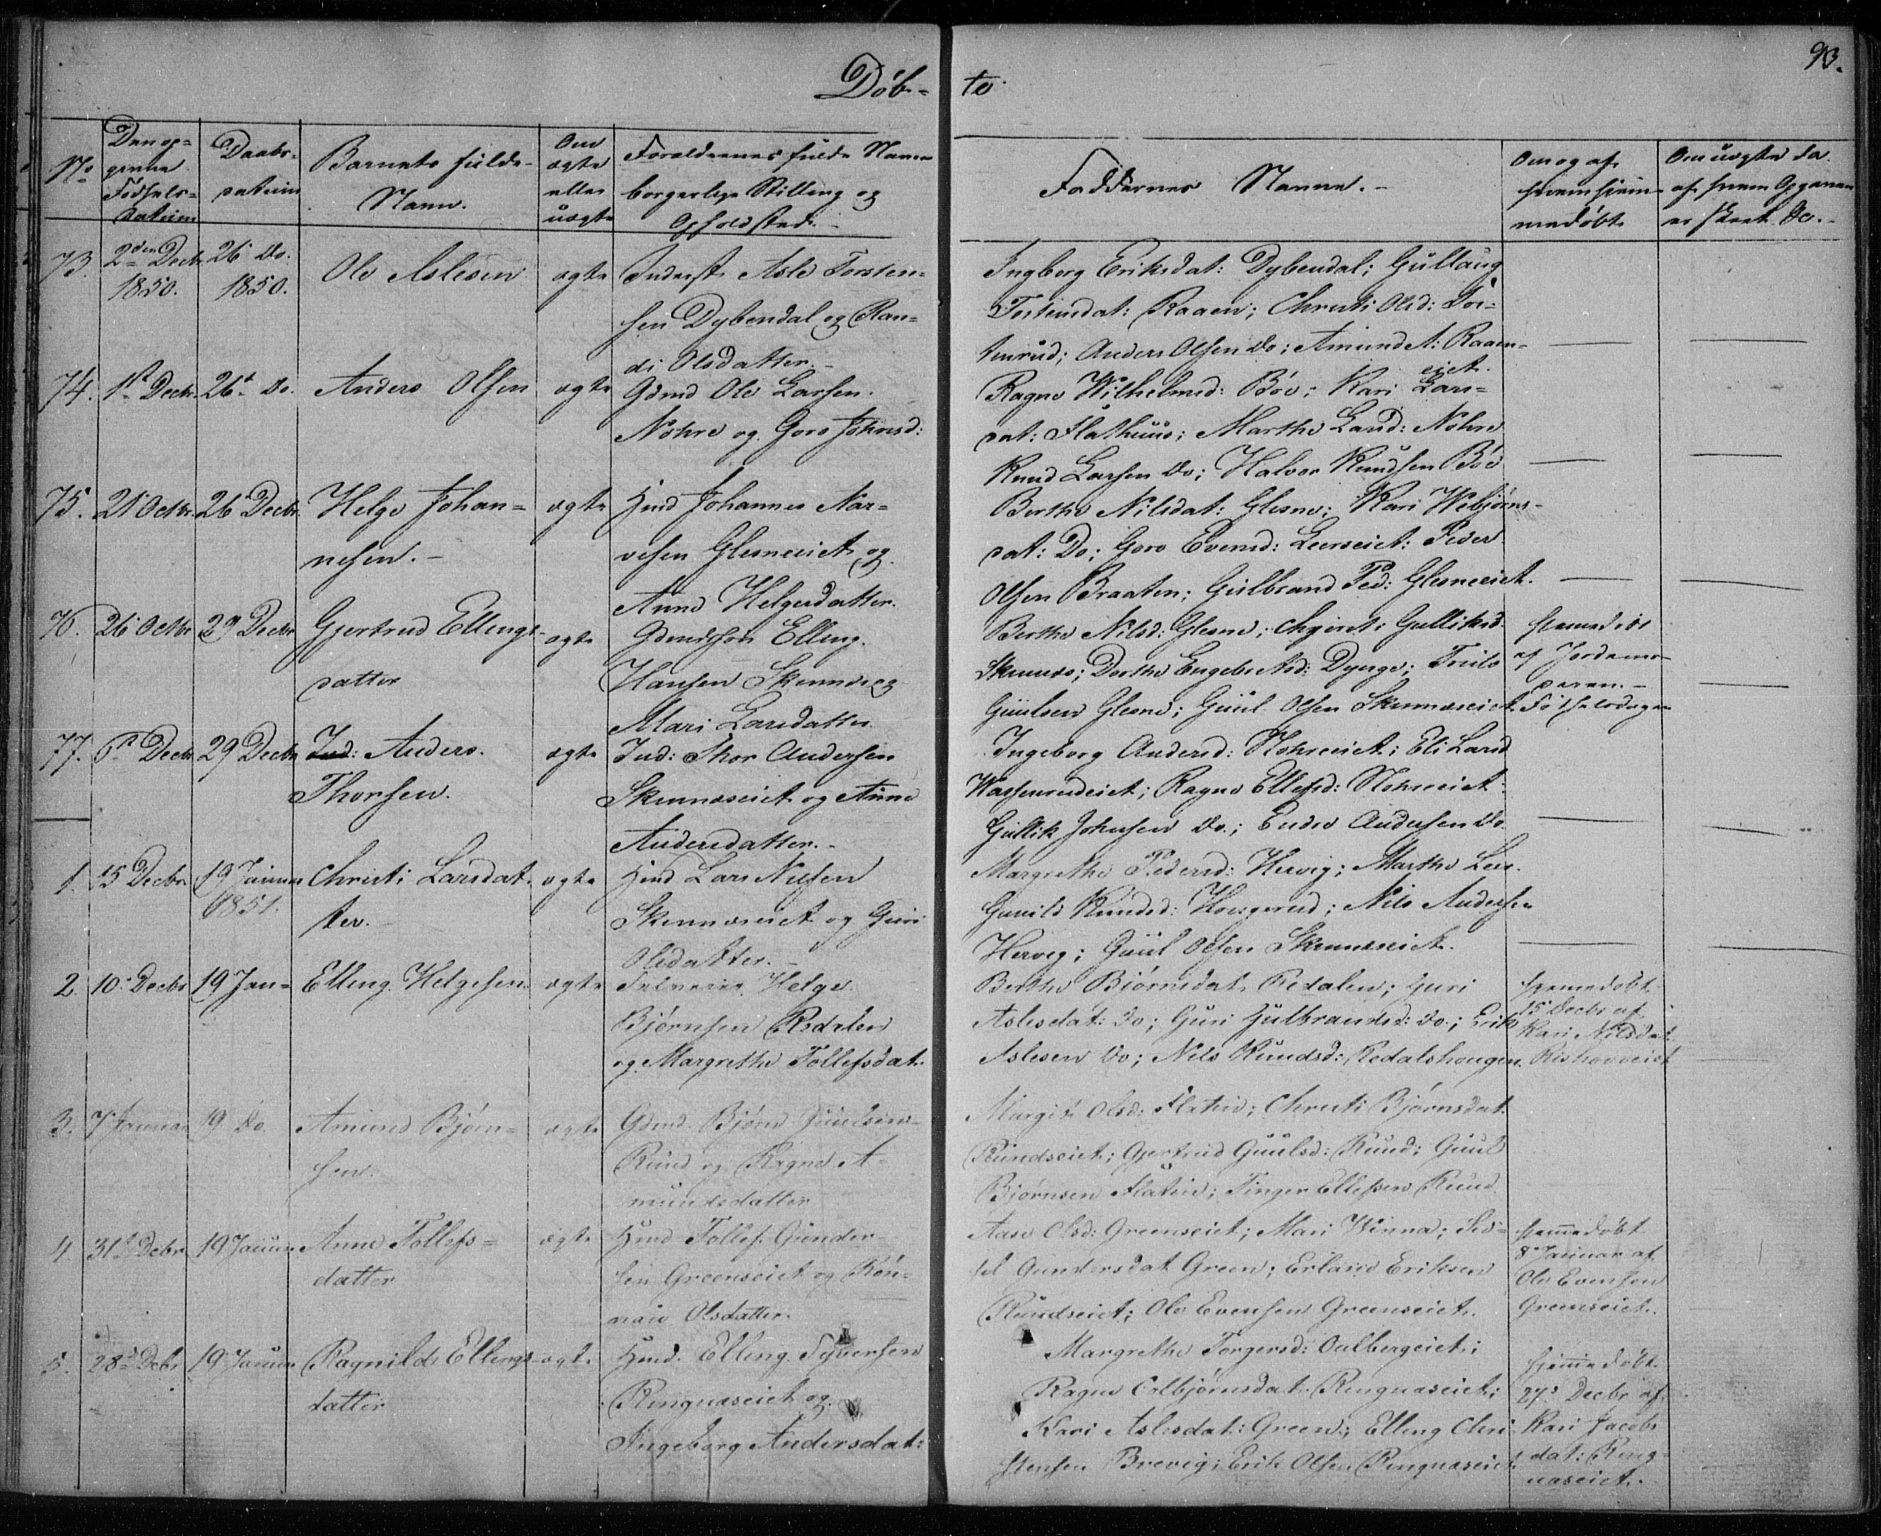 93.
Döb- te
No
Den op-
givne
Födsels-
datum
Daabs-
datum
Barnets fulde
Navn.
Om
ægte
eller
uægte
Forældrenes fulde Navne
borgerlige Stilling og
Opholdsted.
Faddernes Navne.
Om og af
hvem hjem-
medöbt
Om uægte da
af hvem Opgaven
er skeet &c.
73. 2den Decbr 26 Do. Ole Aslesen ægte Inderst Asle Torsten-
1850. 1850.
sen Dybendal og Ran-
di Olsdatter
Ingborg Eriksdat: Dybendal; Gullaug
Tostensdat: Raaen; Christi Olsd:
Anders Olsen Do; Amund A: Raaen-
eiet.
74. 1st Decbr. 26d Do. Anders Olsen ægte Gdmd Ole Larsen
Nohre og Goro Johnsd:
Ragne Wilhelmsd: Böe; Kari Lars-
dat: Flathuus; Marthe Larsd: Nohre
Knud Larsen Do; Halvor Knudsen Böe
75. 21 Octbr. 26 Decbr. Helge Johan- ægte Hmd Johannes Nar-
nesen.
vesen Glesneeiet og
Anne Helgesdatter.
Berthe Nilsdat: Glesne; Kari Webjörns-
dat: Do; Goro Evensd: Leerseiet: Peder
Olsen Braaten; Gulbrand Ped: Glesneeiet.
76. 26 Octbr 29 Decbr Gjertrud Ellings- ægte Gdmdssön Elling
datter
Hansen Skinnes og
Mari Larsdatter
Berthe Nilsd: Glesne; Gulliksd.
Dorthe Engebretsd: Dynge; Truls
Guulsen Glesne; Guul Olsen Skinneseiet
hjemmedöbt
af Jordemo-
deren.
Födselsdagen
77. 6te Decbr 29 Decbr Ind: Anders ægte Ind: Thor Andersen
Thorsen.
Skinnæseiet og Anne
Andersdatter.
Ingeborg Andersd: Nohreeiet; Eli Larsd
Ragne Ellefsd: Nohreeiet
Gullik Johnsen Do.; Endre Andersen Do.
1. 15 Decbr. 19 Januar Christi Larsdat- ægte Hmd Lars Nilsen
1851.
ter.
Skinnæseiet og Guri
Olsdatter.
Margrethe Pedersd: Hervig; Marthe
Gunild Knudsd: Nils Andersen
Hervig; Guul Olsen Skinnæseiet.
2. 10 Decbr 19 Jan- Elling Helgesen ægte Selveier Helge
Björnsen Redalen
og Margrethe Tollefsdat.
Berthe Björnsdat Redalen; Guri
Aslesdat: Do; Guri Gulbrandsd: Do.; Erik
Aslesen Do; Nils Knudsd: Redalshougen
hjemmedöbt
15 Decbr af
Kari Nilsdat
Rishoveeiet
3. 7 Januar 19 Do Amund Björn- ægte Gdmd. Björn Guulsen
sen.
Ruud og Ragne A-
mundsdatter
Margit Olsd: Flaten; Christi Björnsdat
Ruudseiet; Gjertrud Guulsd: Ruud; Guul
Björnsen Flaten; Tinger Ellefsen Ruud
4. 31t Decbr 19 Januar Anne Tollefs- ægte Hmd Tollef Gunder-
datter
sen Greenseiet og Rön-
nau Olsdatter.
Aase Olsd: Greenseiet; Mari Winna; Sid-
sel Gundersdat Green; Erland Eriksen
Ruudseiet; Ole Evensen Greenseiet.
hjemmedöbt
8 Januar af
Ole Evensen
Greenseiet.
5. 28d Decbr 19 Januar Ragnild Ellings- ægte Hmd. Elling Syversen
datter
Ringnæseiet og
Ingeborg Andersdat:
Margrethe Torgersd: Oulbergeiet;
Ragne Colbjörnsdat. Ringnæseiet;
Kari Aslesdat: Green; Elling Chri-
stensen Brevig; Erik Olsen Ringnæseiet
hjemmedöbt
27d Decbr af
Kari Jacobs
dat: Ring-
næseiet.